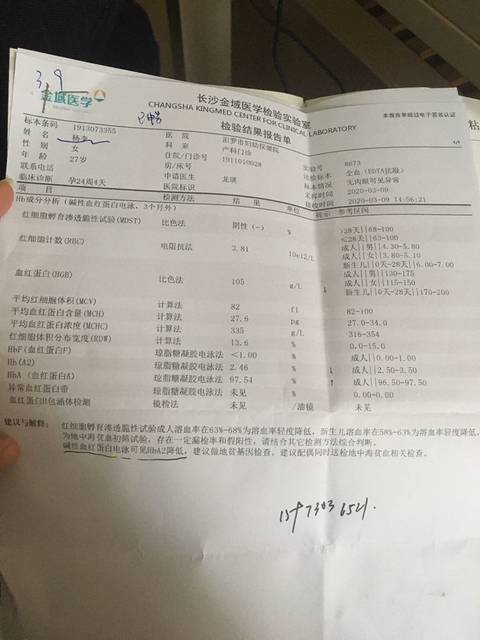 3.9
金域医学
长沙金域医学检验实验室
CHANGSHA KINGMED CENTER FOR CLINICAL LABORATORY
检验结果报告单
本报告单经过电子签名认证
1/1
标本条码 1913073355 医 院 汨罗市妇幼保健院 实验号 8673
姓 名 杨 科 室 产科门诊 送检标本 全血(EDTA抗凝)
性 别 女 住院/门诊号 1911010028 标本情况 无肉眼可见异常
年 龄 27岁 房/床号 采样时间 2020-03-09
联系电话 申请医生 龙琪 接收时间 2020-03-09 14:56:21
临床诊断 孕24周4天 医院标识
项 目 检测方法 结 果 单位 提示 参考区间
Hb成分分析(碱性血红蛋白电泳,3个月外)
红细胞孵育渗透脆性试验(MDST) 比色法 阴性(-) % >28天||68-100
≤28天||63-100
红细胞计数(RBC) 电阻抗法 3.81 10e12/L 成人||男||4.30-5.80
成人||女||3.80-5.10
新生儿||0天-28天||6.00-7.00
血红蛋白(HGB) 比色法 105 g/L ↓ 成人||男||130-175
成人||女||115-150
新生儿||0天-28天||170-200
平均红细胞体积(MCV) 计算法 82 fl 82-100
平均血红蛋白含量(MCH) 计算法 27.6 pg 27.0-34.0
平均血红蛋白浓度(MCHC) 计算法 335 g/L 316-354
红细胞体积分布宽度(RDW) 计算法 13.6 % 0.0-15.0
HbF(血红蛋白F) 琼脂糖凝胶电泳法 <1.00 % 成人||0.00-1.00
Hb(A2) 琼脂糖凝胶电泳法 2.46 % ↓ 成人||2.50-3.50
HbA(血红蛋白A) 琼脂糖凝胶电泳法 97.54 % ↑ 成人||96.50-97.50
异常血红蛋白带 琼脂糖凝胶电泳法 未见 % 0.00-0.00
血红蛋白H包涵体检测 镜检法 未见 /油镜 未见
建议与解释: 红细胞孵育渗透脆性试验成人溶血率在63%-68%为溶血率轻度降低,新生儿溶血率在58%-63%为溶血率轻度降低,
为地中海贫血初筛试验,存在一定漏检率和假阳性,请结合其它检测方法综合判断。
碱性血红蛋白电泳可见HbA2降低,建议做地贫基因检查。建议配偶同时送检地中海贫血相关检查。